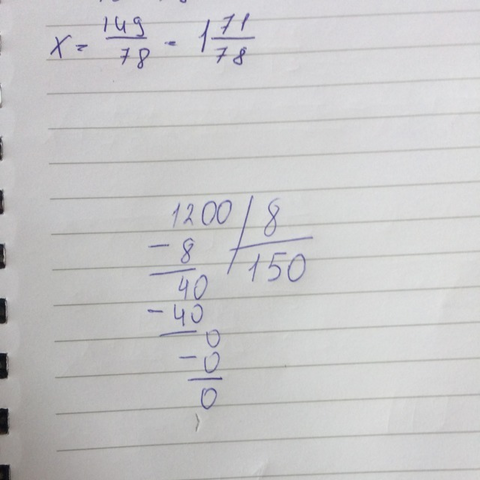 x = 149/78 = 1 71/78
1200 | 8
- 8 | 150
40
- 40
0
- 0
0